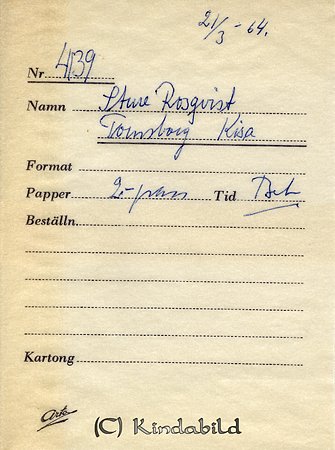 21/3 - 64.
Nr 4139
Namn Sture Rosqvist
Tomsborg Kisa
Format
Papper 2-pass Tid Bet
Beställn.
Kartong
Ark
(C) Kindabild